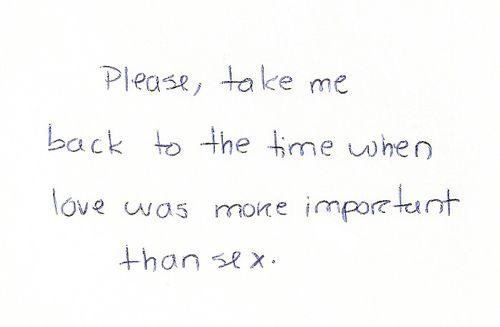 Please, take me
back to the time when
love was more important
than sex.